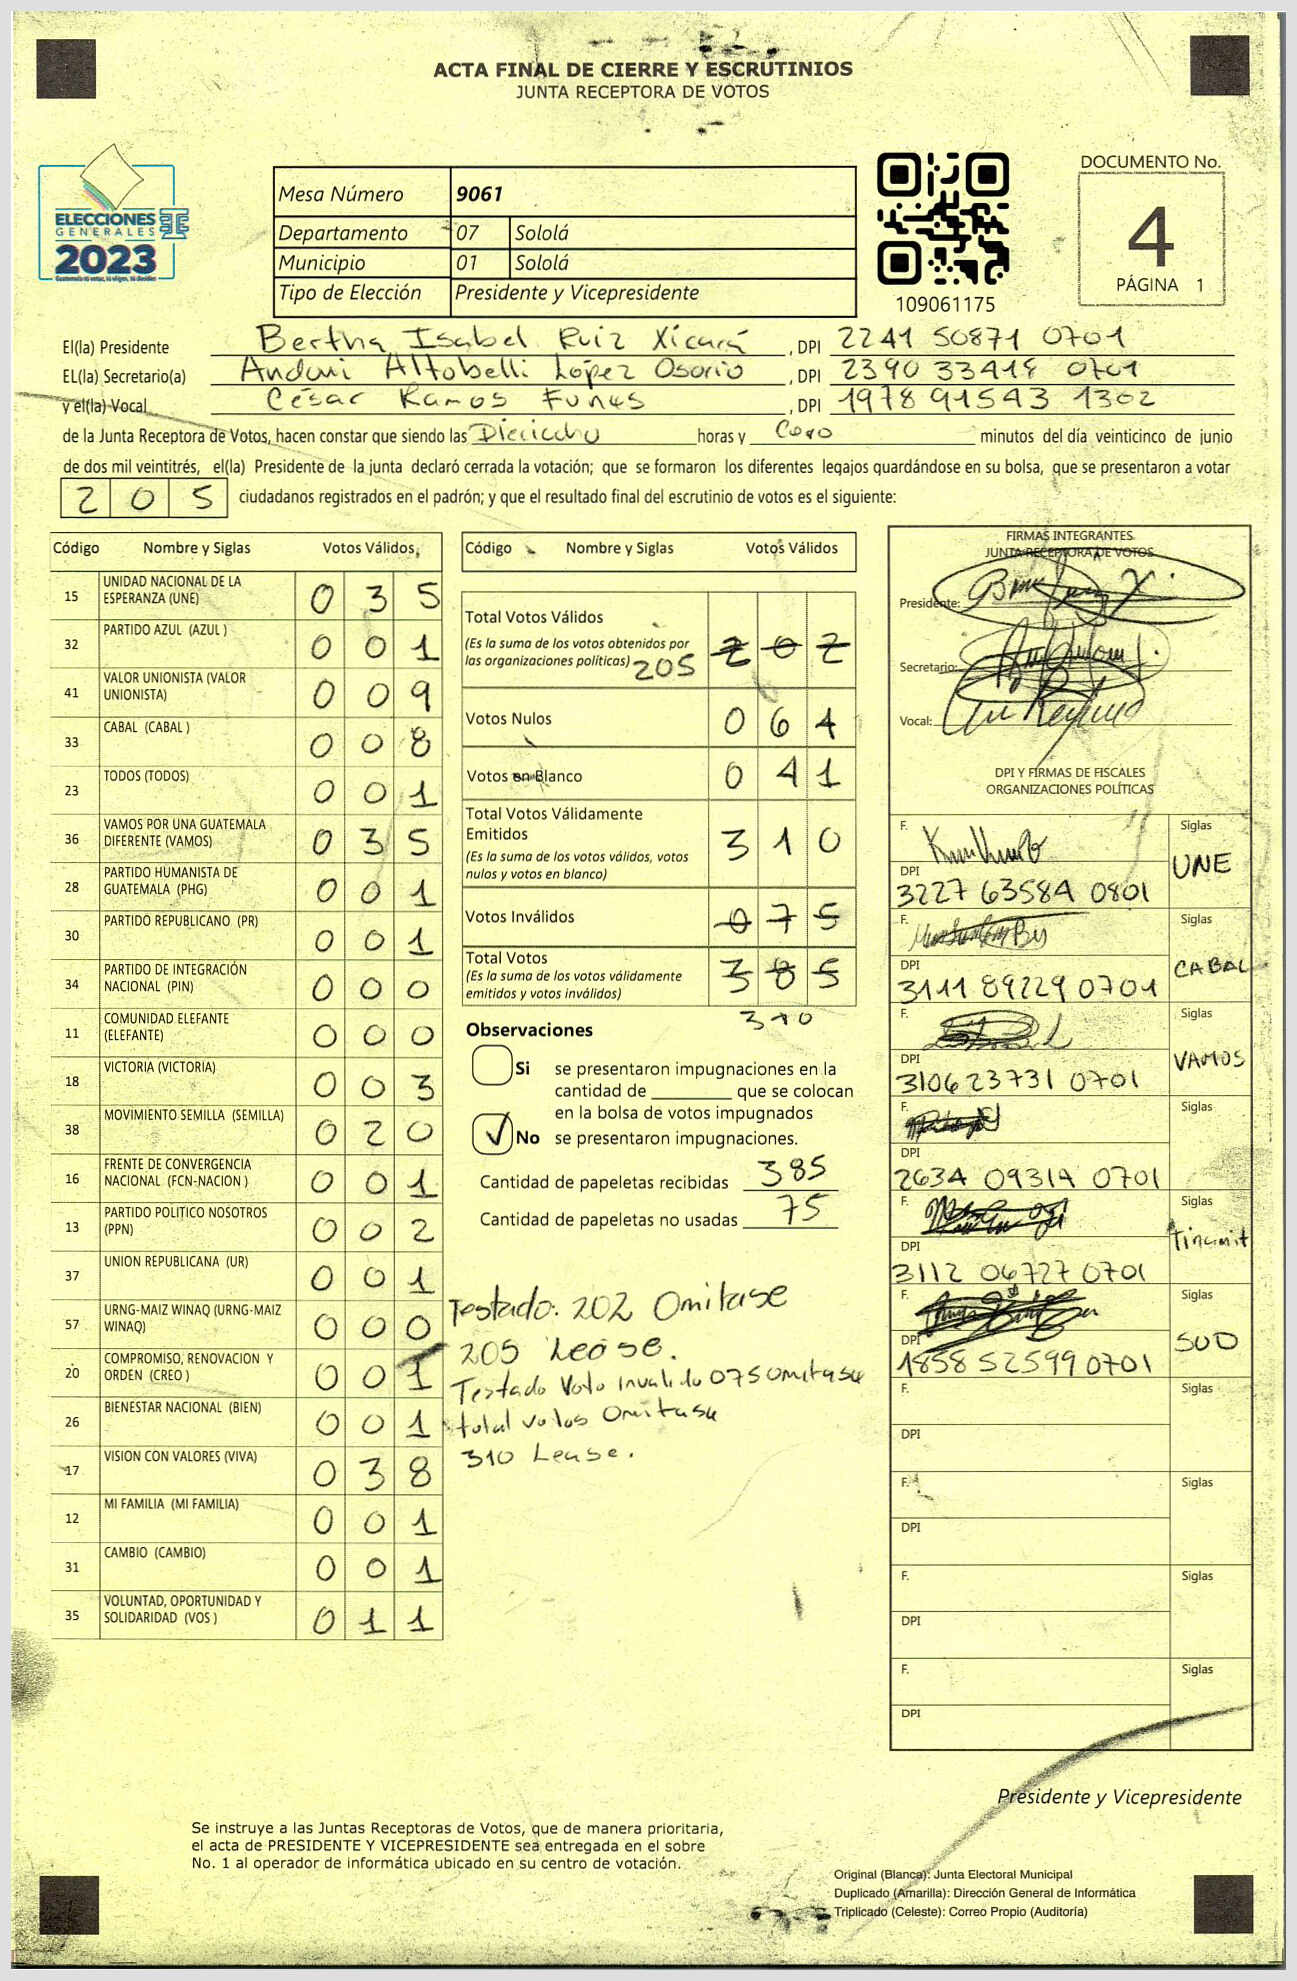 ACTA FINAL DE CIERRE Y ESCRUTINIOS
JUNTA RECEPTORA DE VOTOS
ELECCIONES
GENERALES
2023
Mesa Número 9061
Departamento 07 Sololá
Municipio 01 Sololá
Tipo de Elección Presidente y Vicepresidente
109061175
DOCUMENTO No.
4
PÁGINA 1
El(la) Presidente Bertha Isabel Ruiz Xicará , DPI 2241 50871 0701
EL(la) Secretario(a) Andoni Altobelli López Osorio , DPI 2390 33418 0701
y el(la) Vocal César Ramos Funes , DPI 1978 91543 1302
de la Junta Receptora de Votos, hacen constar que siendo las Dieciocho horas y Cero minutos del día veinticinco de junio
de dos mil veintitrés, el(la) Presidente de la junta declaró cerrada la votación; que se formaron los diferentes legajos guardándose en su bolsa, que se presentaron a votar
205 ciudadanos registrados en el padrón; y que el resultado final del escrutinio de votos es el siguiente:
Código Nombre y Siglas Votos Válidos
15 UNIDAD NACIONAL DE LA ESPERANZA (UNE) 0 3 5
32 PARTIDO AZUL (AZUL ) 0 0 1
41 VALOR UNIONISTA (VALOR UNIONISTA) 0 0 9
33 CABAL (CABAL ) 0 0 8
23 TODOS (TODOS) 0 0 1
36 VAMOS POR UNA GUATEMALA DIFERENTE (VAMOS) 0 3 5
28 PARTIDO HUMANISTA DE GUATEMALA (PHG) 0 0 1
30 PARTIDO REPUBLICANO (PR) 0 0 1
34 PARTIDO DE INTEGRACIÓN NACIONAL (PIN) 0 0 0
11 COMUNIDAD ELEFANTE (ELEFANTE) 0 0 0
18 VICTORIA (VICTORIA) 0 0 3
38 MOVIMIENTO SEMILLA (SEMILLA) 0 2 0
16 FRENTE DE CONVERGENCIA NACIONAL (FCN-NACION ) 0 0 1
13 PARTIDO POLITICO NOSOTROS (PPN) 0 0 2
37 UNION REPUBLICANA (UR) 0 0 1
57 URNG-MAIZ WINAQ (URNG-MAIZ WINAQ) 0 0 0
20 COMPROMISO, RENOVACION Y ORDEN (CREO ) 0 0 1
26 BIENESTAR NACIONAL (BIEN) 0 0 1
17 VISION CON VALORES (VIVA) 0 3 8
12 MI FAMILIA (MI FAMILIA) 0 0 1
31 CAMBIO (CAMBIO) 0 0 1
35 VOLUNTAD, OPORTUNIDAD Y SOLIDARIDAD (VOS ) 0 1 1
Código Nombre y Siglas Votos Válidos
Total Votos Válidos
(Es la suma de los votos obtenidos por
las organizaciones políticas) 205 2 0 2
Votos Nulos 0 6 4
Votos en Blanco 0 4 1
Total Votos Válidamente
Emitidos 3 1 0
(Es la suma de los votos válidos, votos
nulos y votos en blanco)
Votos Inválidos 0 7 5
Total Votos 3 8 5
(Es la suma de los votos válidamente
emitidos y votos inválidos)
310
Observaciones
Si se presentaron impugnaciones en la
cantidad de ________ que se colocan
en la bolsa de votos impugnados
✓ No se presentaron impugnaciones.
Cantidad de papeletas recibidas 385
Cantidad de papeletas no usadas 75
Testado: 202 Omitase
205 Leáse.
Testado Voto Invalido 075 Omitase
total votos Omitase
310 Lease.
FIRMAS INTEGRANTES
JUNTA RECEPTORA DE VOTOS
Presidente:
Secretario:
Vocal:
DPI Y FIRMAS DE FISCALES
ORGANIZACIONES POLÍTICAS
F. Siglas
UNE
DPI
3227 63584 0801
F. Siglas
CABAL
DPI
3111 89229 0701
F. Siglas
VAMOS
DPI
3106 23731 0701
F. Siglas
DPI
2634 09314 0701
F. Siglas
DPI
3112 06727 0701
F. Siglas
DPI
1858 52599 0701
F. Siglas
DPI
F. Siglas
DPI
F. Siglas
DPI
F. Siglas
DPI
Presidente y Vicepresidente
Se instruye a las Juntas Receptoras de Votos, que de manera prioritaria,
el acta de PRESIDENTE Y VICEPRESIDENTE sea entregada en el sobre
No. 1 al operador de informática ubicado en su centro de votación.
Original (Blanca): Junta Electoral Municipal
Duplicado (Amarilla): Dirección General de Informática
Triplicado (Celeste): Correo Propio (Auditoría)